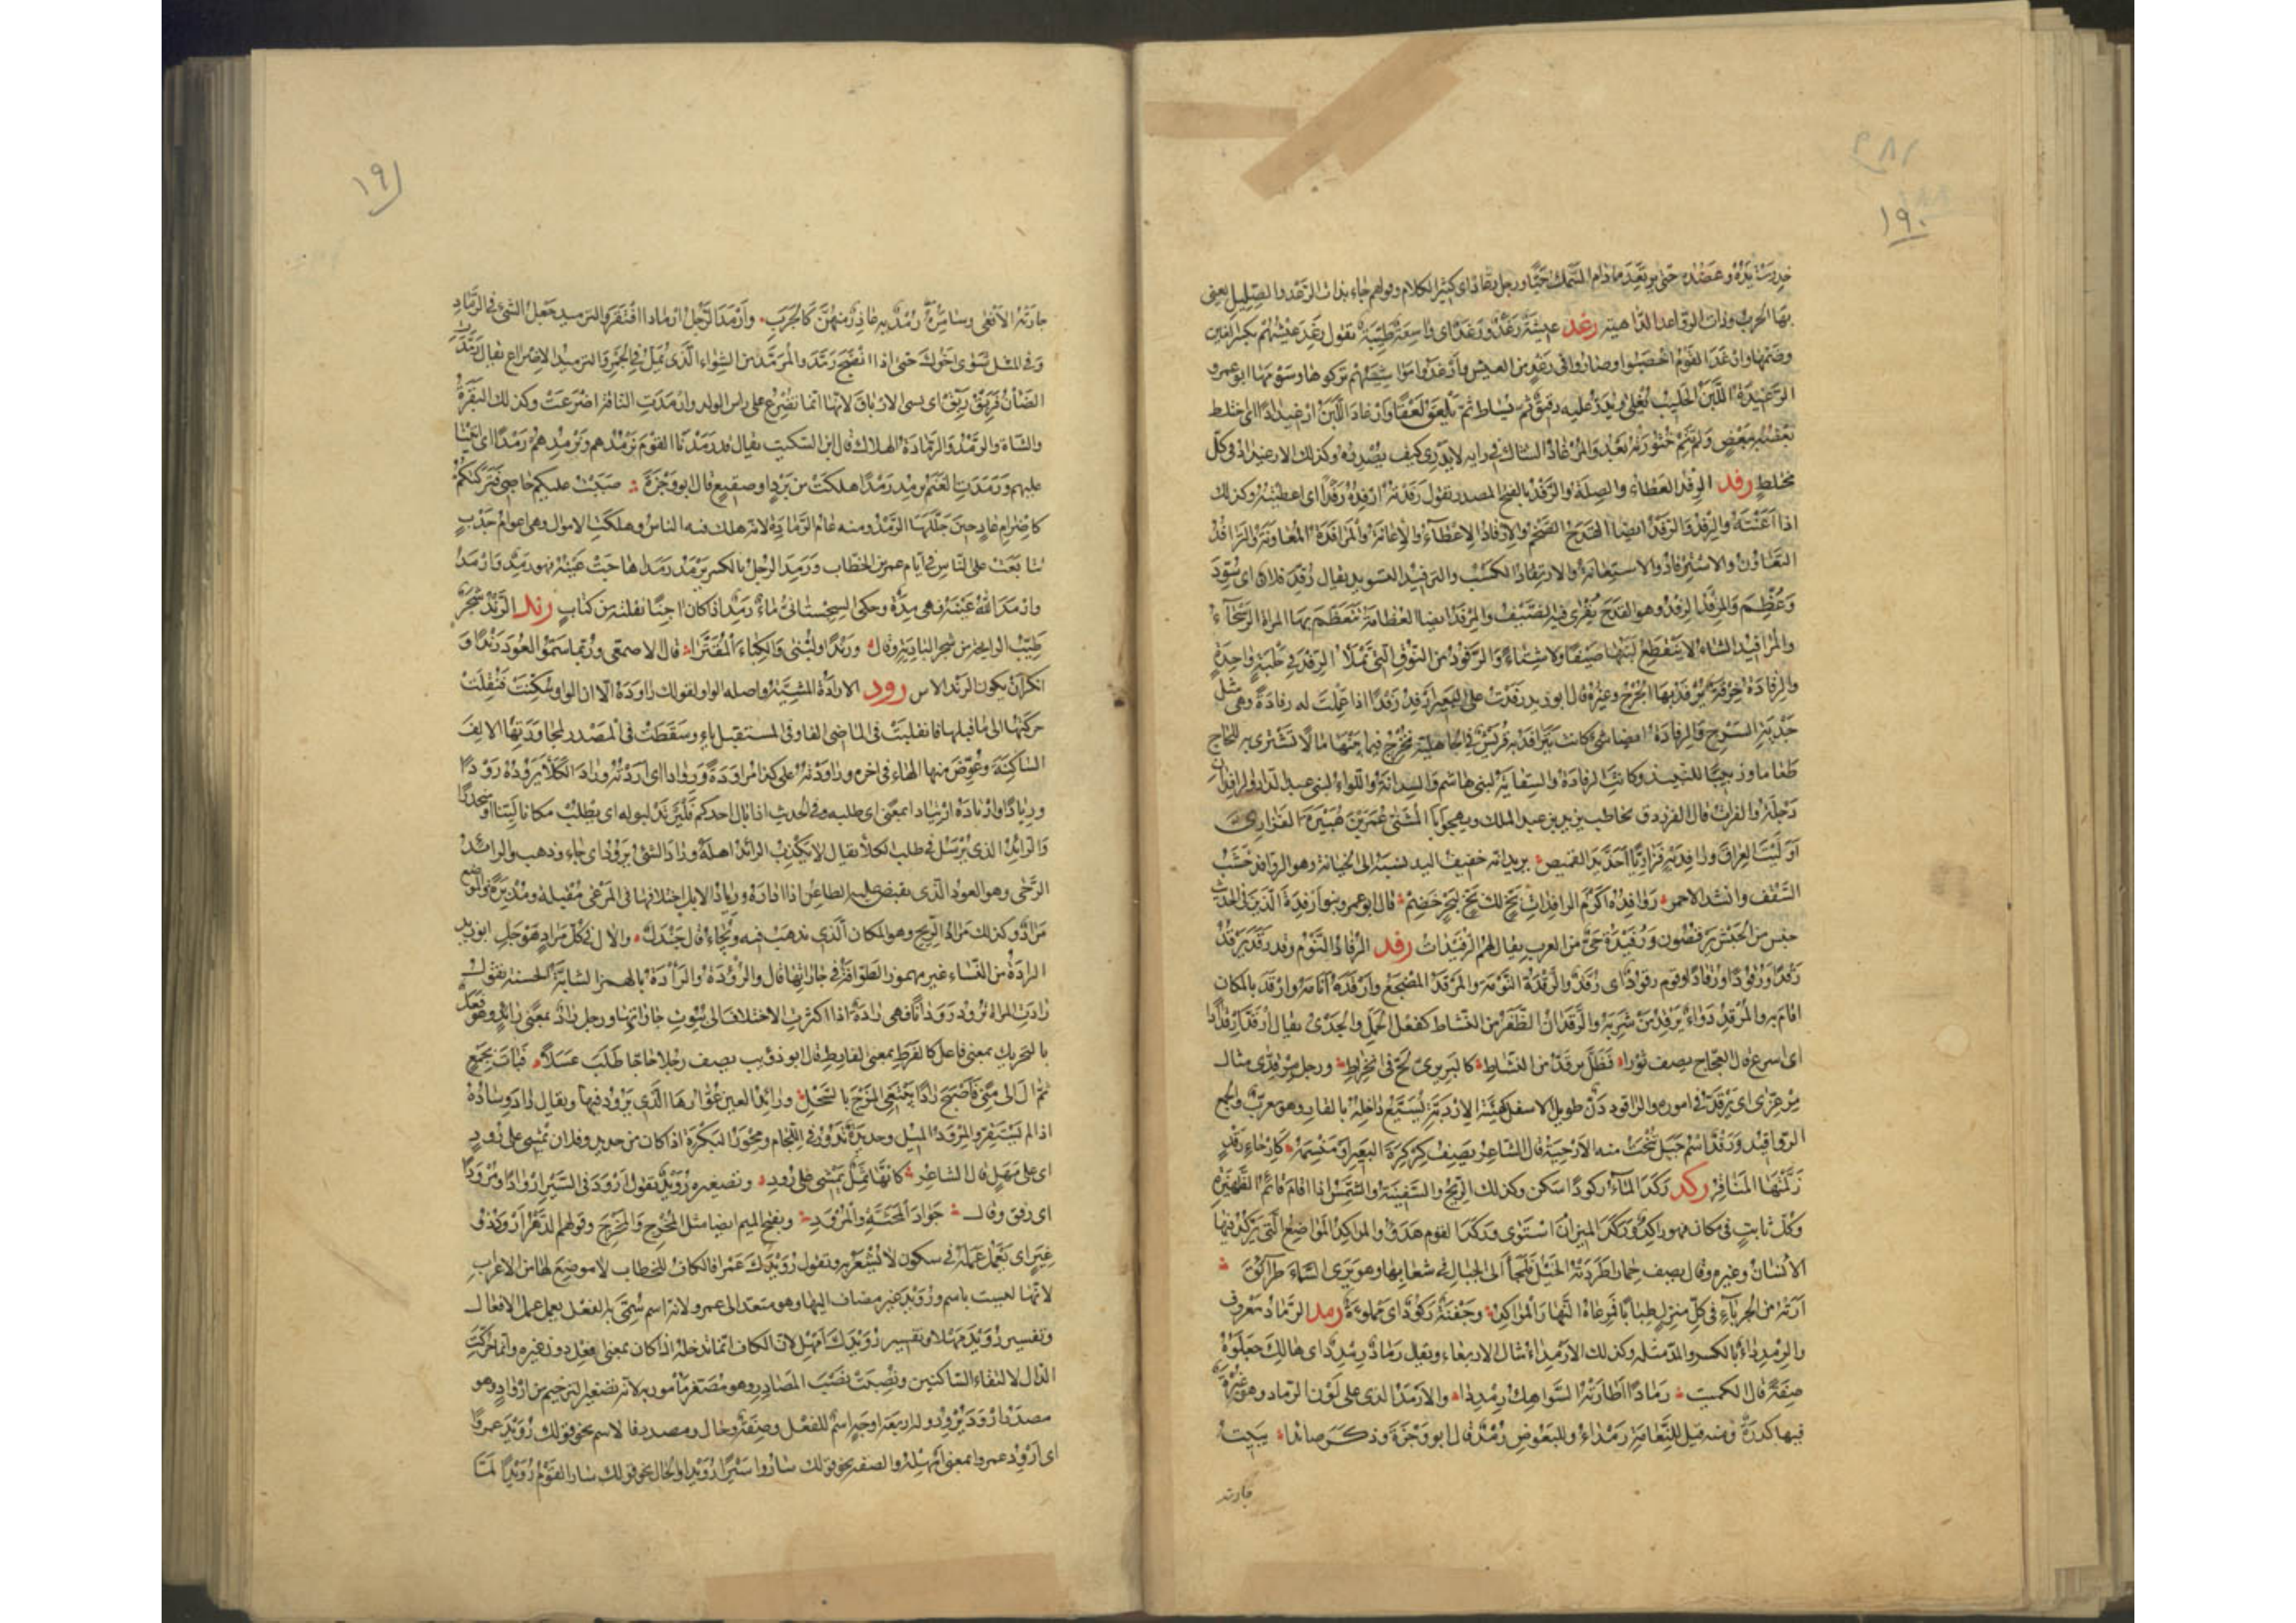 ١٩٠
خدرت يده وعضده حتى يرتعد ما دام السمك حيا ورجل رعاد اى كثير الكلام وقولهم جاء بذات الرعد والصليل يعنى
بها الحرب وذات الرواعد الداهية رغد عيشة رغد ورغد اى واسعة طيبة تقول رغد عيشهم بكسر الغين
وضمها وارغد القوم اخصبوا وصاروا فى رغد من العيش وارغدوا مواشيهم تركوها وسومها ابو عمرو
الرغيدة اللبن الحليب يغلى ويذر عليه دقيق ثم يساط ثم يلعق لعقا وارغاد اللبن ارغيدادا اى اختلط
بعضه ببعض ولم تتم خثورته بعد والمرغاد الشاك فى رايه لا يدرى كيف يصدره وكذلك الارغيداد فى كل
مختلط رفد الرفد العطاء والصلة والرفد بالفتح المصدر تقول رفدته ارفده رفدا اى اعطيته وكذلك
اذا اعنته والرفد والرفد ايضا القدح الضخم والارفاد الاعطاء والاعانة والمرافدة المعاونة والترافد
التعاون والاسترفاد الاستعانة والارتفاد الكسب والترفيد التسويد يقال رفد فلان اى سود
وعظم والمرفد الرفد وهو القدح يقرى فيه الضيف والمرفد ايضا العظامة تتعظم بها المراة الرسحاء
والمرافيد الشاء لا ينقطع لبنها صيفا ولا شتاء والرفود من النوق التى تملا الرفد فى حلبة واحدة
والرفادة خرقة يرفد بها الجرح وغيره قال ابو زيد رفدت على البعير ارفد رفدا اذا عملت له رفادة وهى مثل
جدية السرج والرفادة ايضا شئ كانت تترافد به قريش فى الجاهلية تخرج فيما بينها مالا تشترى به للحاج
طعاما وزبيبا للنبيذ وكانت الرفادة والسقاية لبنى هاشم والسدانة واللواء لبنى عبد الدار والرافدان
دجلة والفرات قال الفرزدق يخاطب يزيد بن عبد الملك ويهجو ابا المثنى عمر بن هبيرة الفزارى
اوليت العراق ورافديه فزاريا احذ يد القميص يريد انه خفيف اليد نسبه الى الخيانة وهو الروافد خشب
السقف وانشد الاحمر روافده اكرم الرافدات بخ لك بخ لبحر خضم قال ابو عمرو بنو ارفدة الذين فى الحديث
جنس من الحبش يرقصون ورفيدة حى من العرب يقال لهم الرفيدات رقد الرقاد النوم وقد رقد يرقد
رقدا ورقودا ورقادا وقوم رقود اى رقد والرقدة النومة والمرقد المضجع وارقده انامه وارقد بالمكان
اقام به والمرقد دواء يرقد من شربه والرقدان الطفر من النشاط كفعل الحمل والجدى يقال ارقد ارقدادا
اى اسرع قال العجاج يصف ثورا فظل يرقد من النشاط كالبربرى لج فى انخراط ورجل مرقدى مثال
مرعزى اى يرقد فى اموره والراقود دن طويل الاسفل كهيئة الاردبة يسيع داخله بالقار وهو معرب والجمع
الرواقيد ورقد اسم جبل تنحت منه الارحية قال الشاعر يصف كركرة البعير او منسمه كارحاء رقد
زلمتها المناقر ركد ركد الماء ركودا سكن وكذلك الريح والسفينة والشمس اذا قام قائم الظهيرة
وكل ثابت فى مكان فهو راكد وركد الميزان استوى وركد القوم هدؤا والمراكد المواضع التى يركد فيها
الانسان وغيره وقال يصف حمارا طردته الخيل فلجأ الى الجبال فى شعابها وهو يرى السماء طرائق
ارته من الجرباء فى كل منزل طبابا فمرعاه النهار المراكد وجفنة ركود اى مملوءة رمد الرماد معروف
والرمدداء بالكسر والمد مثله وكذلك الارمداء مثال الاربعاء ويقال رماد رمدد اى هالك جعلوه
صفة قال الكميت رمادا اطارته السواهك رمددا والارمد الذى على لون الرماد وهو غبرة
فيها كدرة ومنه قيل للنعامة رمداء وللبعوض رمد قال ابو وجزة وذكر صائدا يبيت
جارته
١٩١
جارته الافعى وسامره رمد به عاذر منهن كالجرب وارمد الرجل ارمادا افتقر والترميد جعل الشئ فى الرماد
وفى المثل شوى اخوك حتى اذا انضج رمد والمرمد من الشواء الذى يمل فى الجمر والترميد الاضراع يقال رمدت
الضان فربق ربق اى هيئ الارباق لانها انما تضرع على راس الولد وارمدت الناقة اضرعت وكذلك البقرة
والشاة والرمد والرمادة الهلاك قال ابن السكيت يقال قد رمدنا القوم نرمدهم ونرمدهم رمدا اى اتينا
عليهم ورمدت الغنم ترمد رمدا هلكت من برد او صقيع قال ابو وجزة صببت عليكم حاصبى فتركتكم
كاصرام عاد حين جللها الرمد ومنه عام الرمادة لانه هلك فيه الناس وهلكت الاموال وهى اعوام جدب
تتابعت على الناس فى ايام عمر بن الخطاب ورمد الرجل بالكسر يرمد رمدا هاجت عينه فهو رمد وارمد
وارمد الله عينه فهى رمدة وحكى السجستانى ماء رمد اذا كان آجنا نقلته من كتاب رند الرند شجر
طيب الرايحة من شجر البادية وقال ورندا ولبنى والكباء المقترا قال الاصمعى وربما سموا العود رندا و
انكر ان يكون الرند الاس رود الارادة المشية واصله الواو لقولك راوده الا ان الواو سكنت فنقلت
حركتها الى ما قبلها فانقلبت فى الماضى الفا وفى المستقبل ياء وسقطت فى المصدر لمجاورتها الالف
الساكنة وعوض منها الهاء فى اخره وراودته على كذا مراودة وروادا اى اردته وراد الكلأ يروده رودا
وريادا وارتاده ارتيادا بمعنى اى طلبه وفى الحديث اذا بال احدكم فليرتد لبوله اى يطلب مكانا لينا او منحدرا
والرائد الذى يرسل فى طلب الكلأ يقال لا يكذب الرائد اهله وراد الشئ يرود اى جاء وذهب والرائد يد
الرحى وهو العود الذى يقبض عليه الطاحن اذا اداره ورياد الابل اختلافها فى المرعى مقبلة ومدبرة والموضع
مراد وكذلك مراد الريح وهو المكان الذى يذهب فيه ويجاء قال جندل والآل فى كل مراد هوجل ابو زيد
الرادة من النساء غير مهموز الطوافة فى جاراتها قال والرؤدة والرأدة بالهمز الشابة الحسنة تقول
رادت المراة ترود رودانا فهى رادة اذا اكثرت الاختلاف الى بيوت جاراتها ورجل راد بمعنى رائد وهو فعل
بالتحريك بمعنى فاعل كالفرط بمعنى الفارط قال ابو ذؤيب يصف رجلا حاجا طلب عسلا فبات بجمع
ثم آل الى منى فاصبح رادا يبتغى المزج بالسحل ورائد العين عوارها الذى يرود فيها ويقال راد وساده
اذا لم يستقر والمرود الميل وحديدة تدور فى اللجام ومحور البكرة اذا كان من حديد وفلان يمشى على رود
اى على مهل قال الشاعر كانها ثمل يمشى على رود وتصغيره رويد تقول ارود فى السير اروادا ومرودا
اى رفق وقال جواد المحثة والمرود وبفتح الميم ايضا مثل المخرج والمخرج وقولهم الدهر ارود ذو
غير اى يعمل عمله فى سكون لا يشعر به وتقول رويدك عمرا فالكاف للخطاب لا موضع لها من الاعراب
لانها ليست باسم ورويد غير مضاف اليها وهو متعد الى عمرو لانه اسم سمى به الفعل يعمل عمل الافعال
وتفسير رويد مهلا وتفسير رويدك امهل لان الكاف انما تدخله اذا كان بمعنى افعل دون غيره وانما حركت
الدال لالتقاء الساكنين ونصبت نصب المصادر وهو مصغر مأمور به لانه تصغير الترخيم من ارواد وهو
مصدر ارود يرود وله اربعة اوجه اسم للفعل وصفة وحال ومصدر فالاسم نحو قولك رويد عمرا
اى ارود عمرا بمعنى امهله والصفة نحو قولك ساروا سيرا رويدا والحال نحو قولك سار القوم رويدا لما